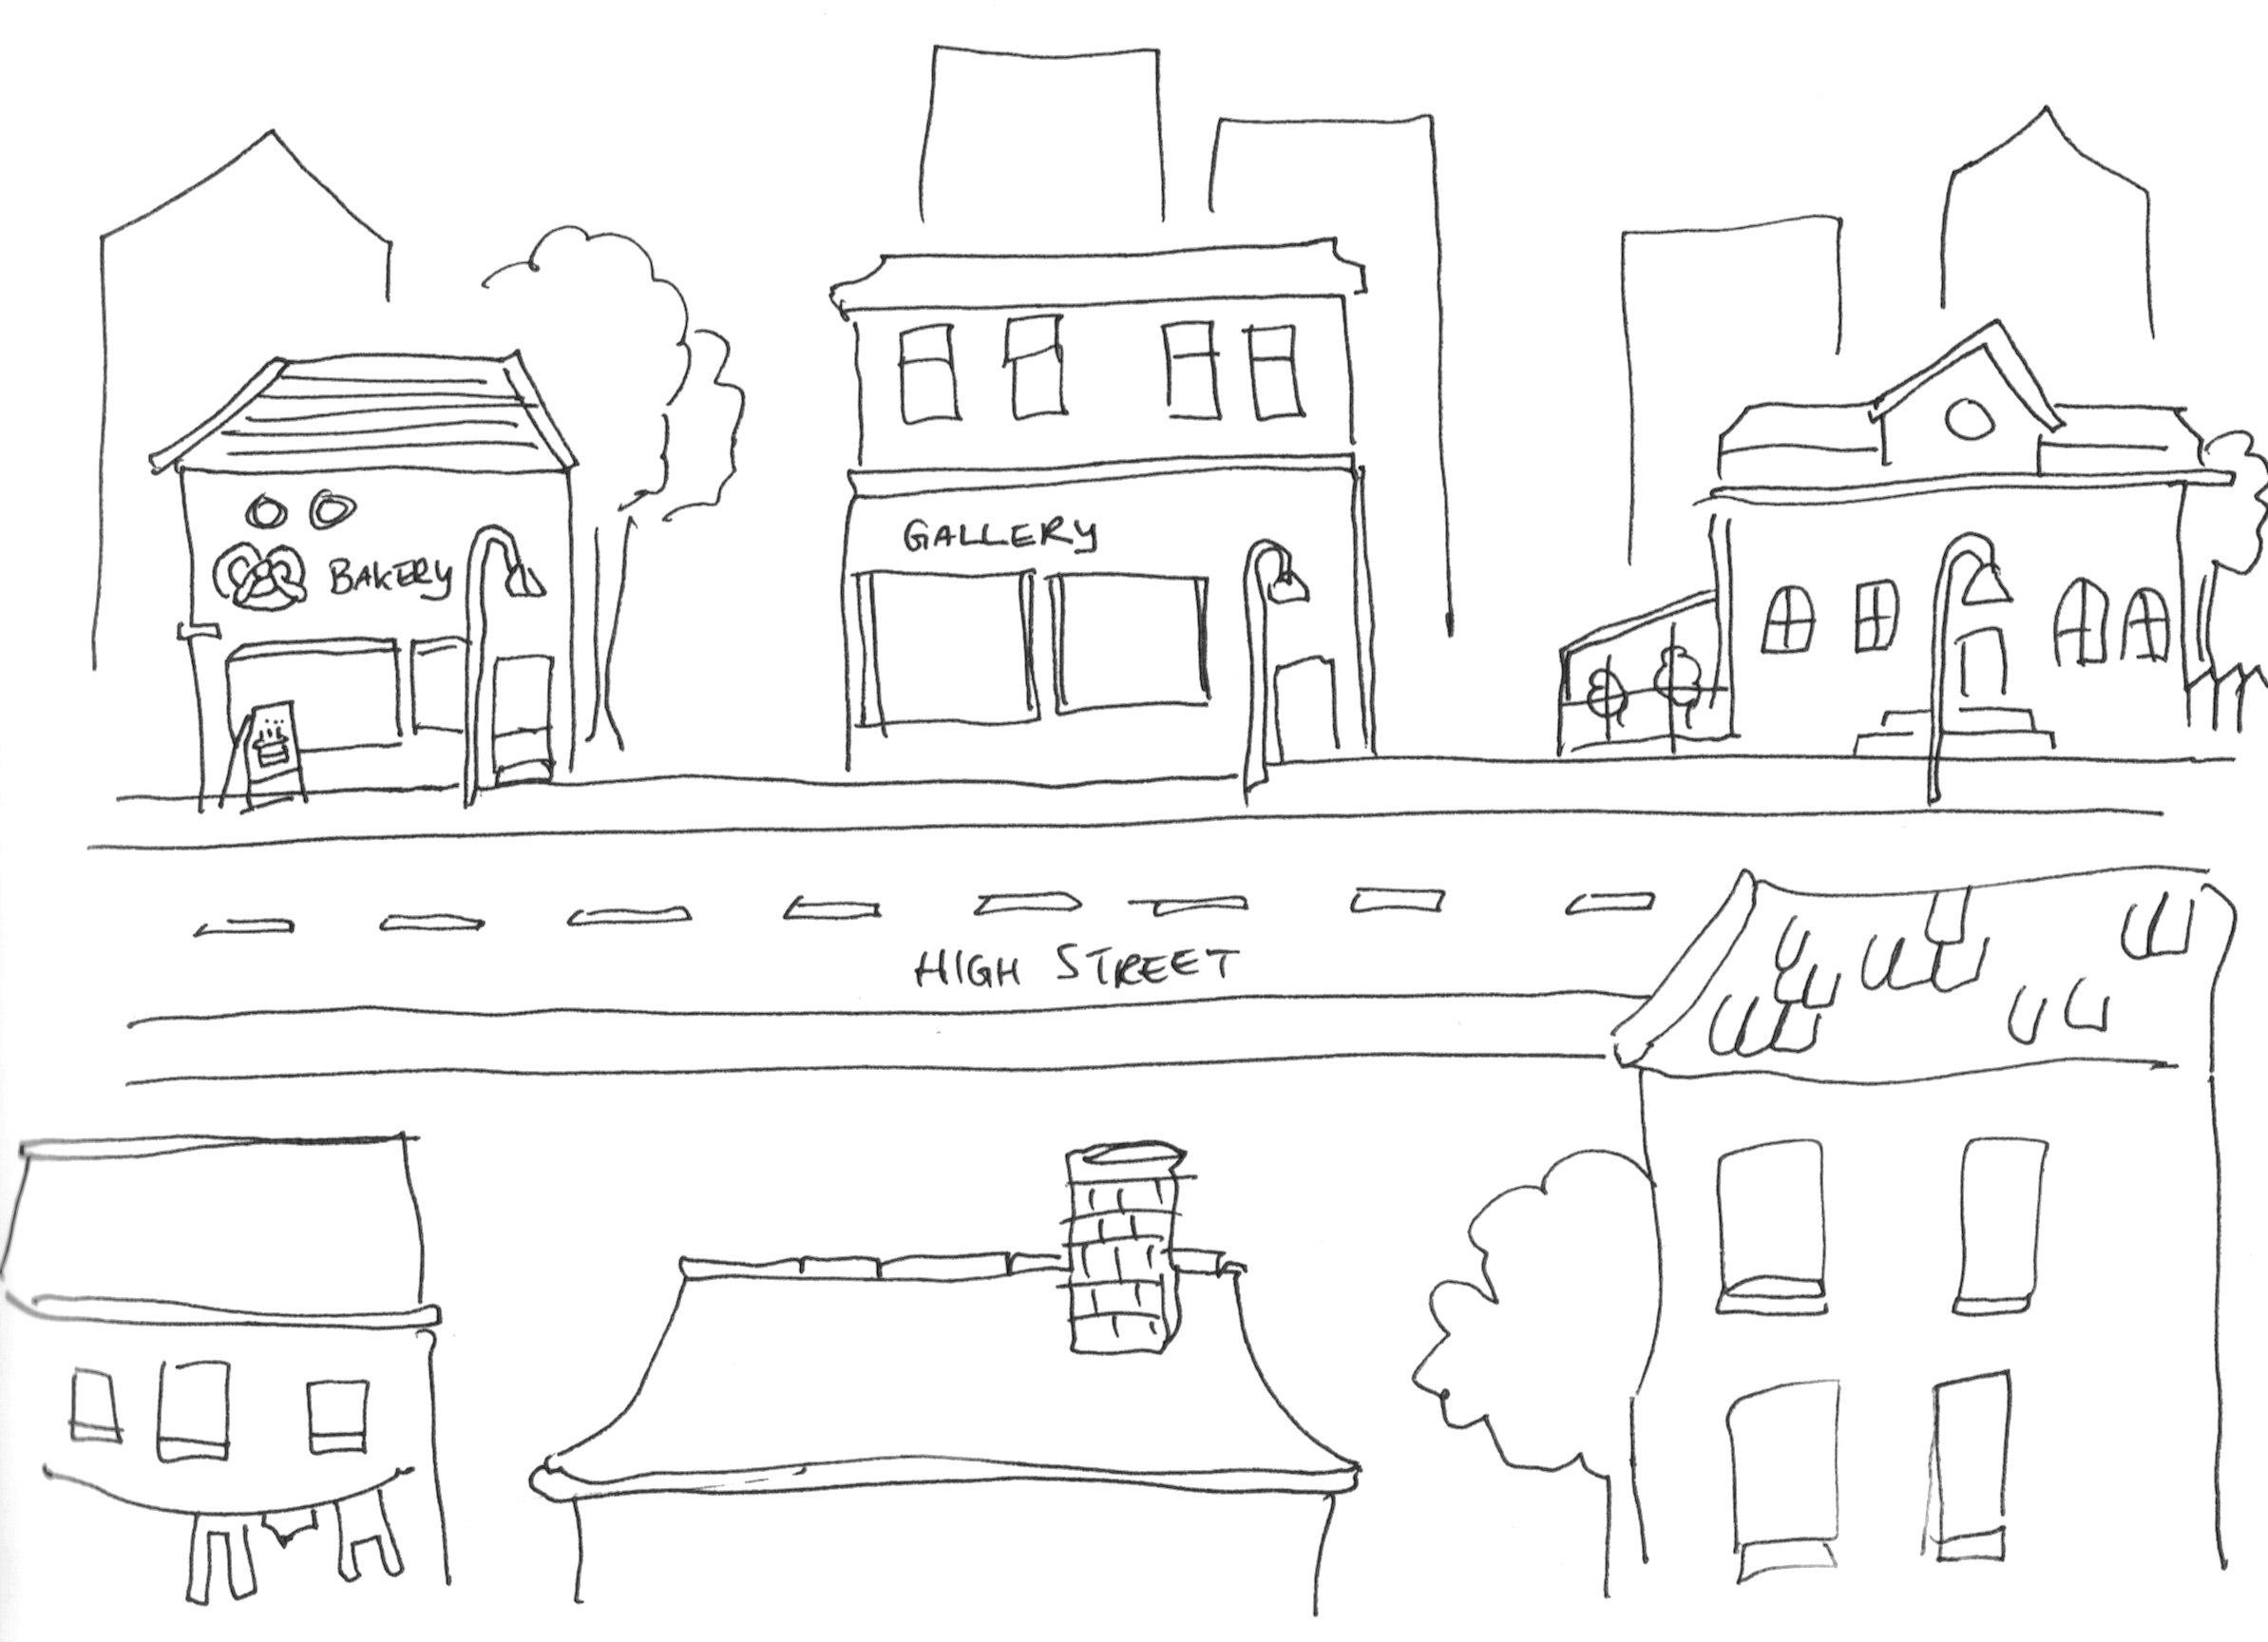 BAKERY
GALLERY
HIGH STREET